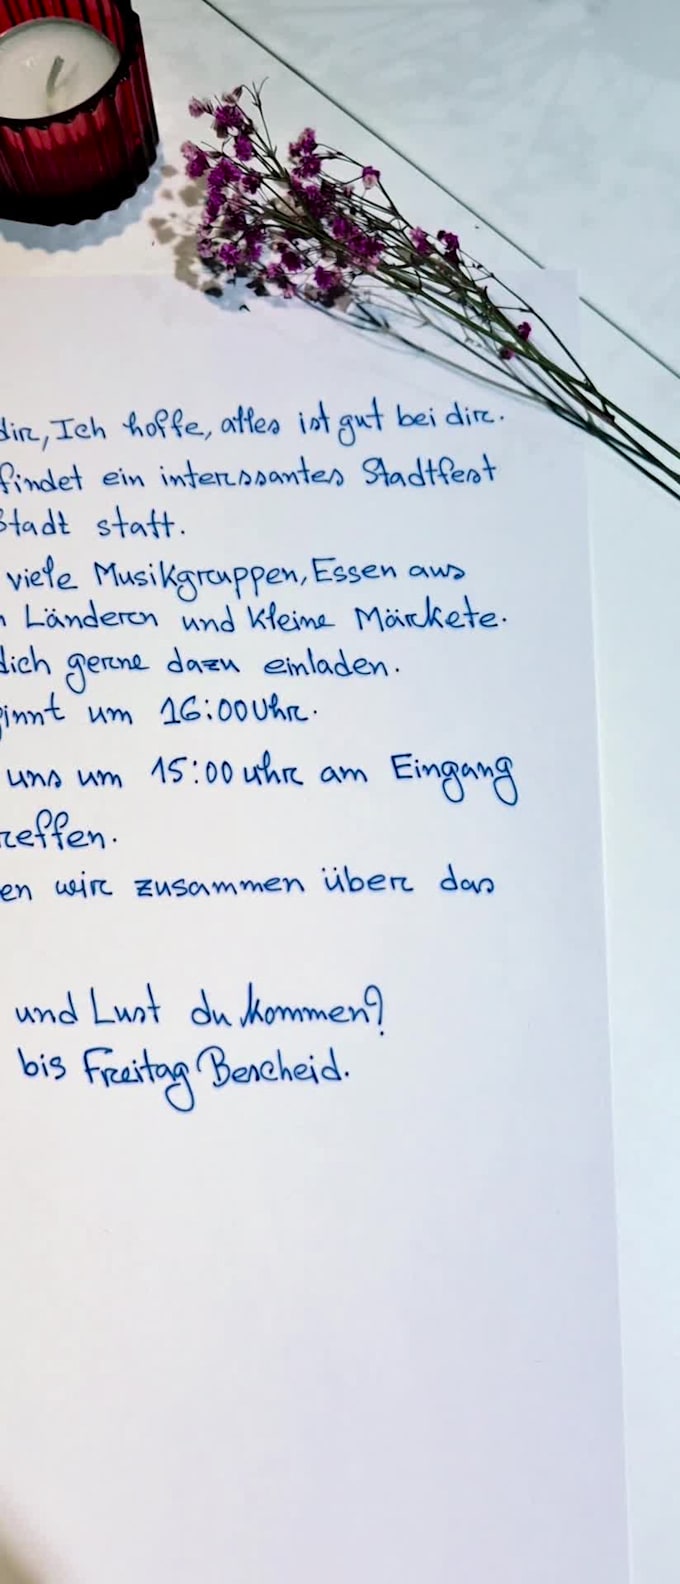 dir, Ich hoffe, alles ist gut bei dir.
findet ein interssantes Stadtfest
Stadt statt.
viele Musikgruppen, Essen aus
n Länderen und kleine Märkete.
dich gerne dazu einladen.
ginnt um 16:00 Uhr.
uns um 15:00 uhr am Eingang
reffen.
en wir zusammen über das
und Lust du kommen?
bis Freitag Bescheid.